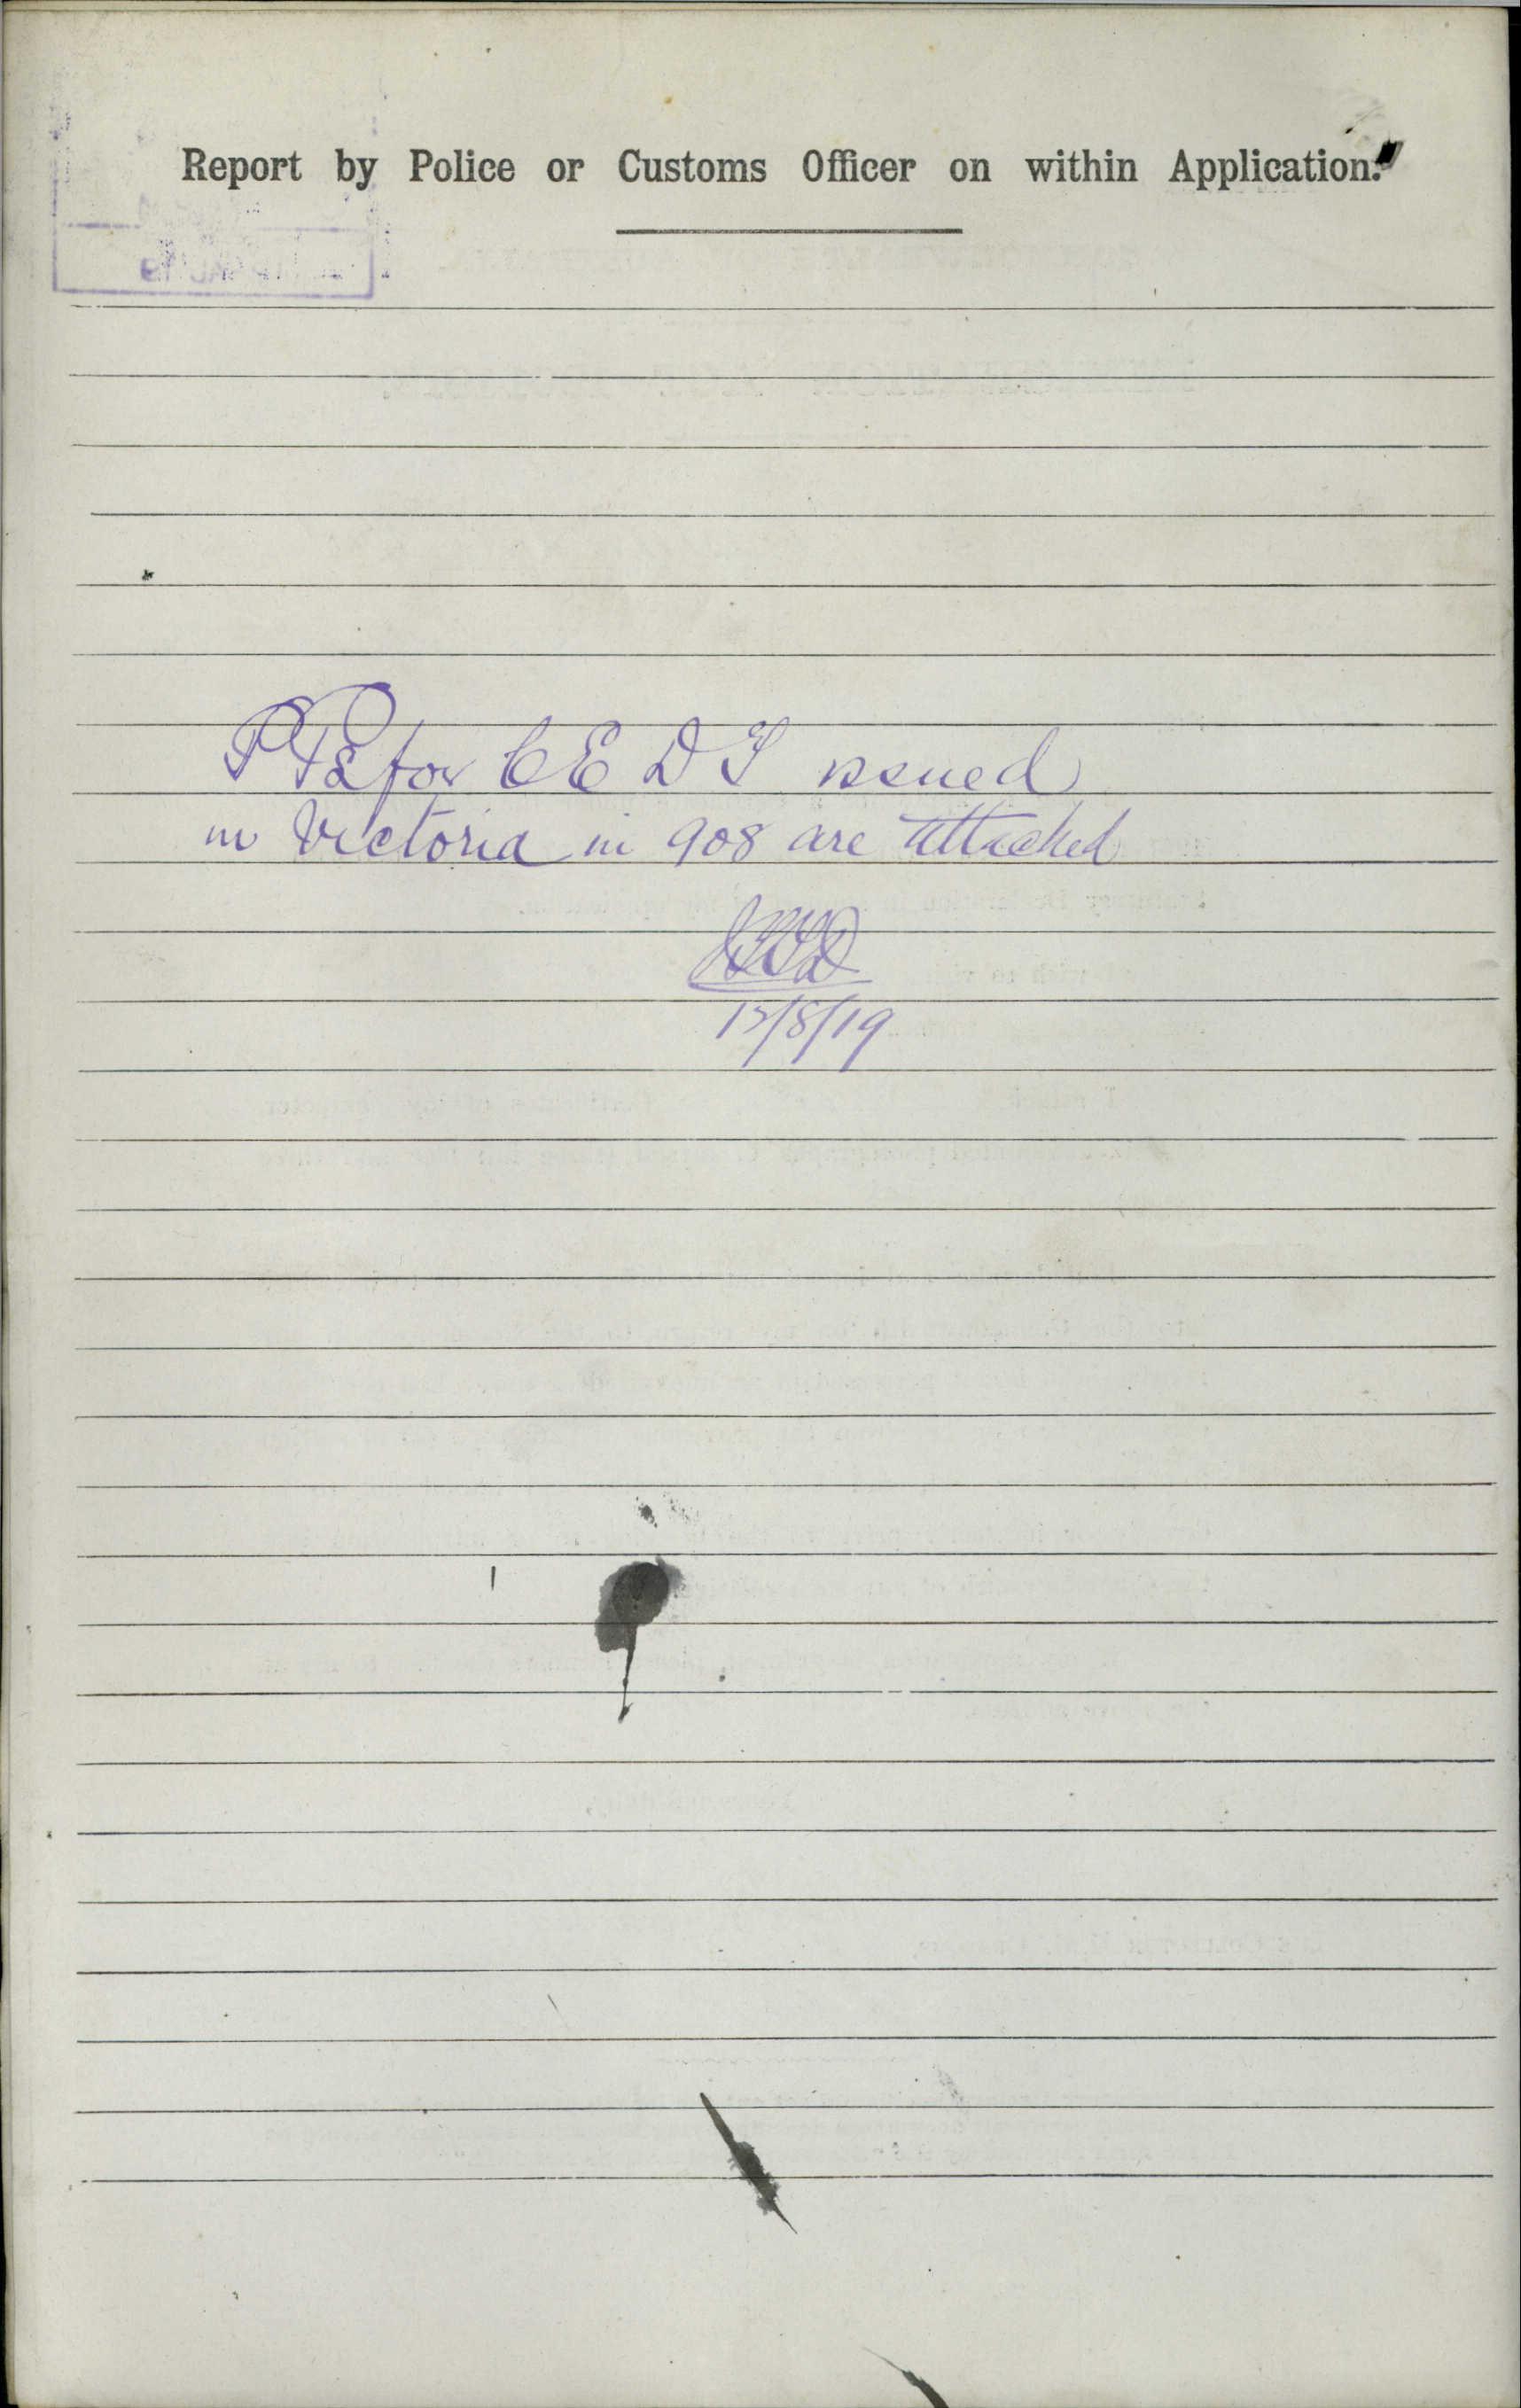 Report by Police or Customs Officer on within Application.
for C E D T issued
in Victoria in 908 are attached
12/8/19